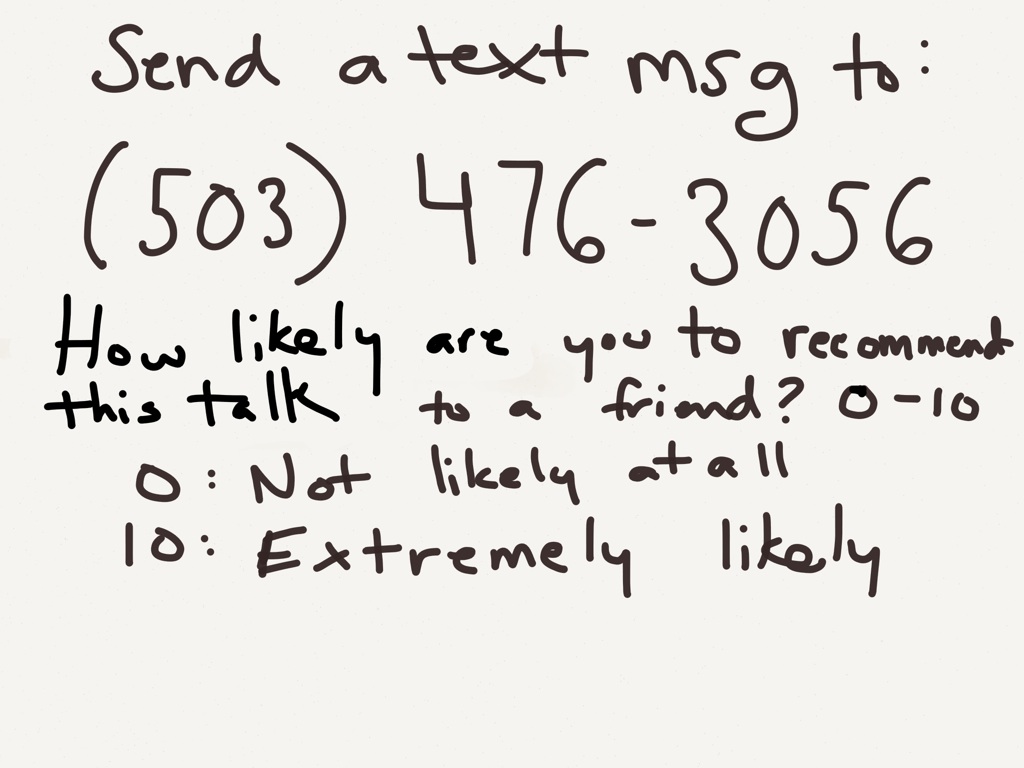 Send a text msg to:
(503) 476-3056
How likely are you to recommend
this talk to a friend? 0-10
0: Not likely at all
10: Extremely likely